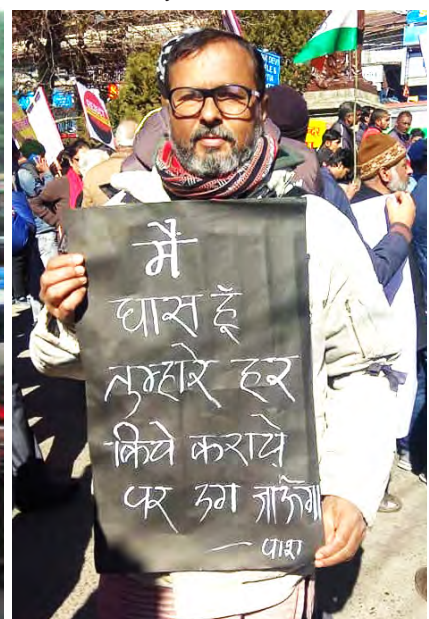 मैं
घास हूँ
तुम्हारे हर
किये कराये
पर उग जाऊँगा
— पाश